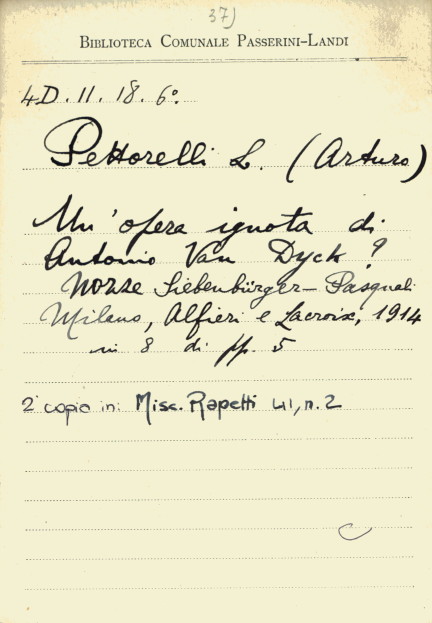 37)
BIBLIOTECA COMUNALE PASSERINI-LANDI
4D.11.18.6°.
Pettorelli L. (Arturo)
Un'opera ignota di
Antonio Van Dyck?
Nozze Siebenbürger-Pasquali
Milano, Alfieri e Lacroix, 1914
in 8 di pp. 5
2ª copia in: Misc. Rapetti 41, n. 2